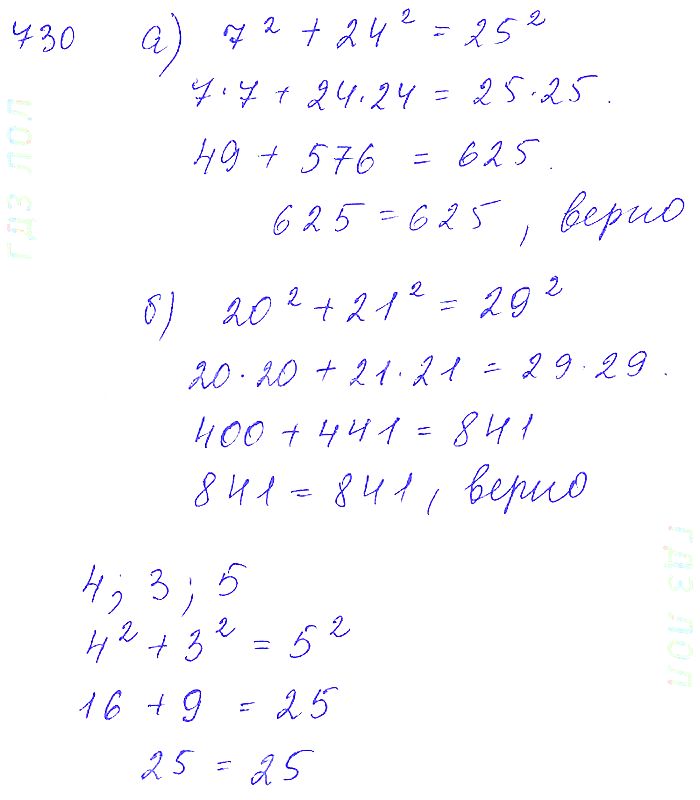 730 а) 7² + 24² = 25²
7·7 + 24·24 = 25·25.
49 + 576 = 625.
625 = 625, верно
б) 20² + 21² = 29²
20·20 + 21·21 = 29·29.
400 + 441 = 841
841 = 841, верно
4; 3; 5
4² + 3² = 5²
16 + 9 = 25
25 = 25
гдз лол
гдз лол